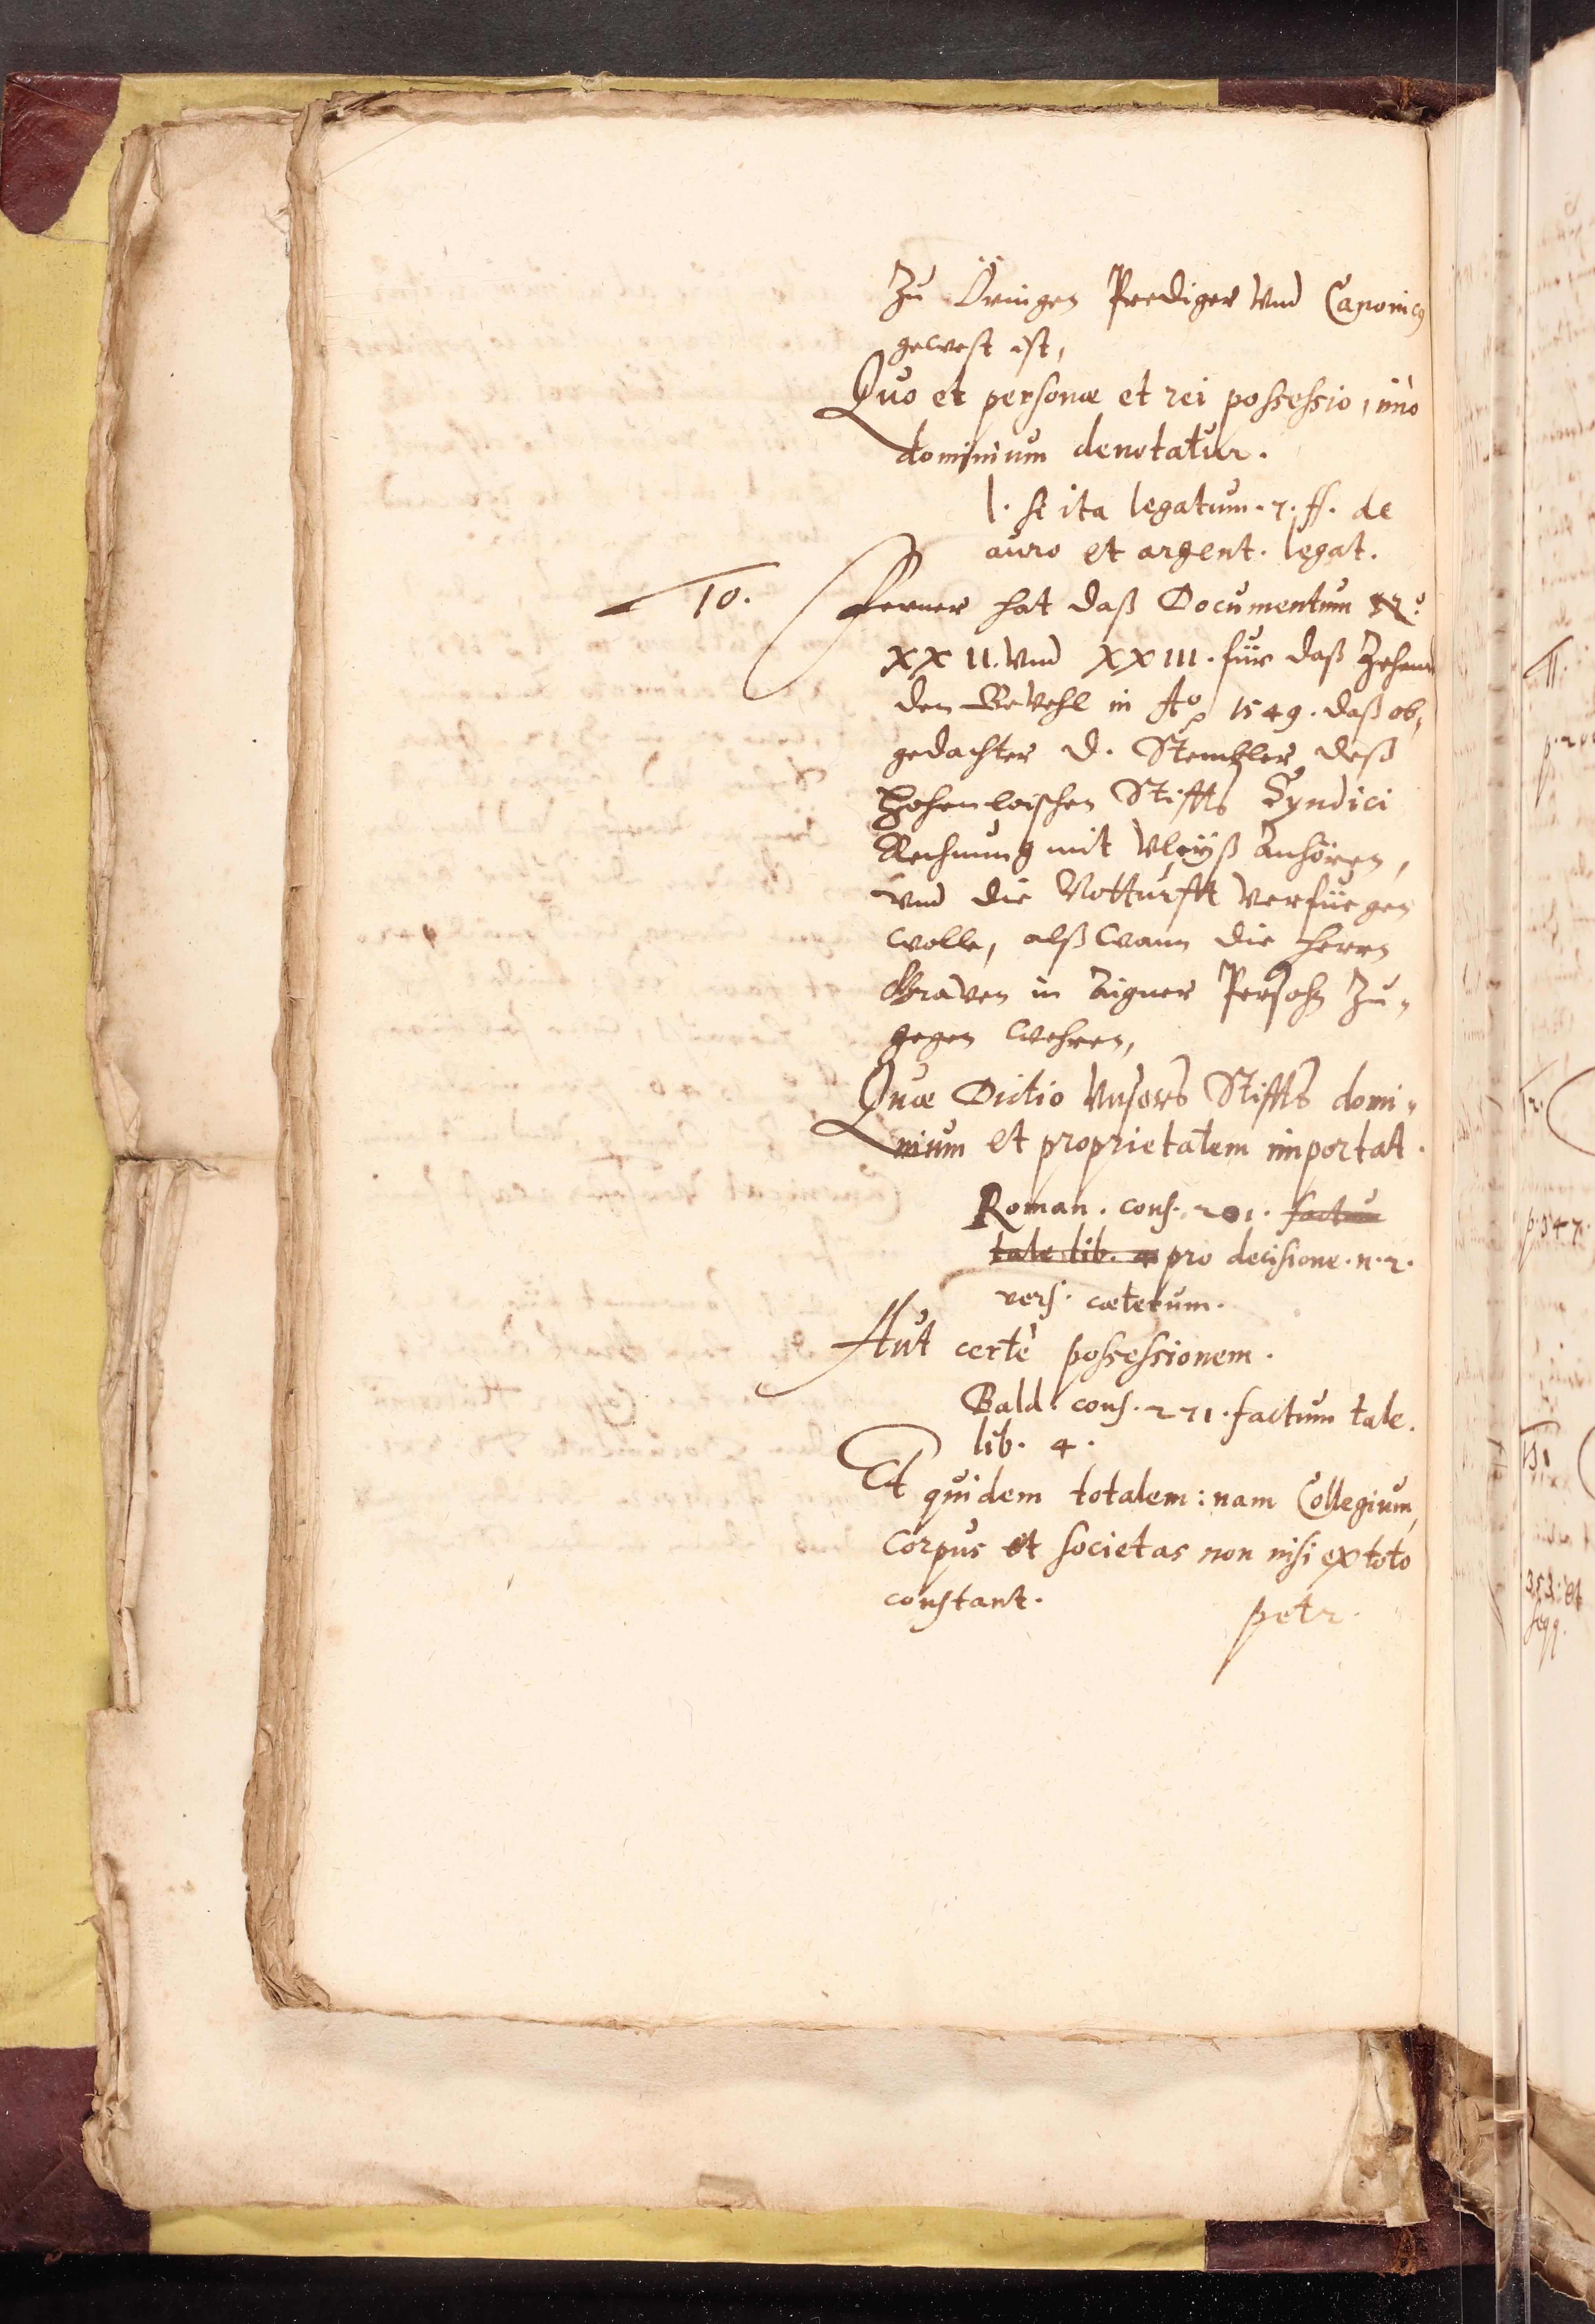 Zu Öringen Prediger vnd Canonicus
gewest ist,
Quo et personæ et rei possessio, imò
dominium denotatur.
l. si ita legatum. 7. ff. de
auro et argent. legat.
10. Ferner hat daß Documentum No
XXII. vnd XXIII. für daß Zehend
den Bevehl in Ao 1549. daß ob,
gedachter D. deß
Hohenloischen Stiffts Syndici
Rechnung mit vleyß anhören,
vnd die Notturfft verfüegen
wolle, alß wann die Herrn
Graven in aigner Persohn zu,
gegen wehren,
Quæ Dictio Vnsers Stiffts domi,
nium et proprietatem importat.
Roman. cons. 201. factum
tale lib. 4 pro decisione. n. 2.
vers. cæterum.
Aut certè possessionem.
Bald. cons. 271. factum tale.
lib. 4.
Et quidem totalem: nam Collegium,
corpus et societas non nisi ex toto
constant.
petr.
11.
12.
p. 347.
13.
353. et
seqq.